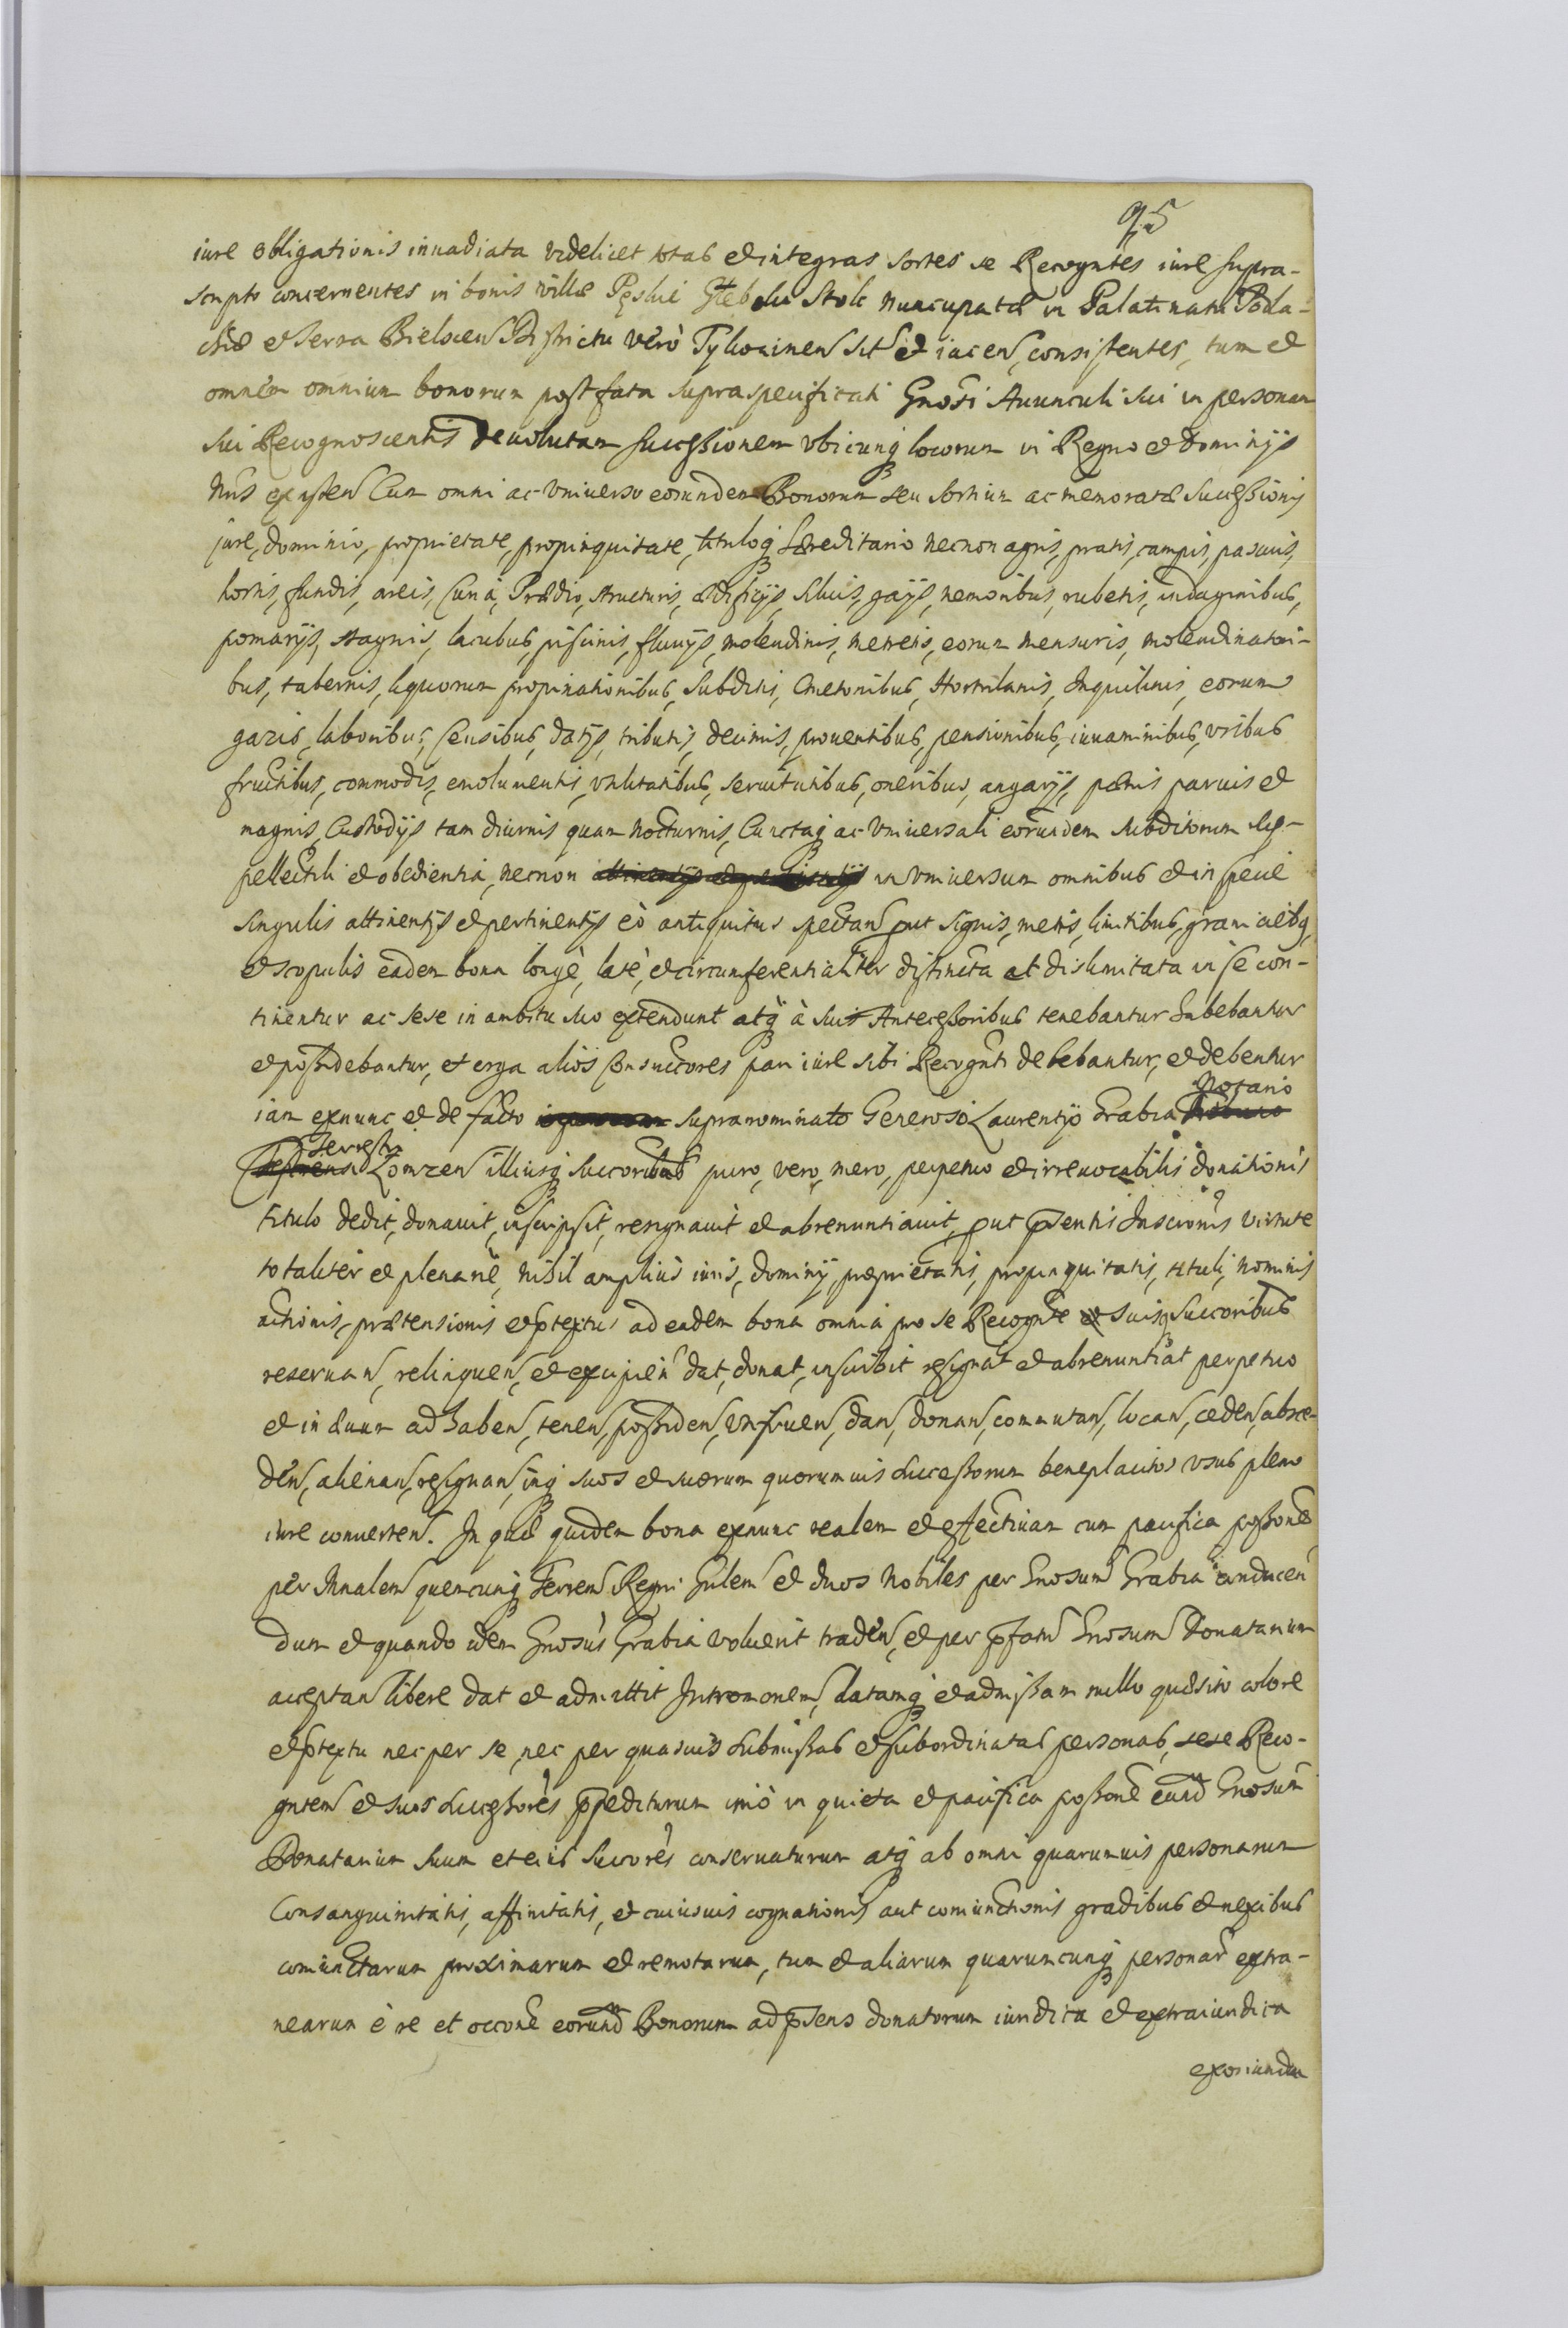 95
iure obligationis inuadiata videlicet totas et integras sortes se Recogntes iure supra-
scripto concernentes in bonis villæ Pęskie Głęboku Stok nuncupatæ in Palatinatu Podla-
chiæ et Terra Bielscen Districtu verò Tykocinen sit et iacen, consistentes, tum et
omnem omnium bonorum post fata supraspecificati Gnosi Auunculi sui in personam
sui Recognoscentis deuolutam successionem vbicunq locorum in Regno et Dominijs
hujus existen Cum omni ac vniuerso eorundem Bonorum seu sortium ac memoratæ Successionis
jure, dominio, proprietate, propinquitate, tituloq hæreditario necnon agris, pratis, campis, pascuis,
hortis, fundis, areis, Curia, Prædio, structuris, ædificijs, siluis, gajis, nemoribus, rubetis, indaginibus,
pomarijs, stagnis, lacubus, piscinis, fluuijs, molendinis, metretis, eorum mensuris, molendinatori-
bus, tabernis, liquorum propinationibus, Subditis, Cmetonibus, Hortulanis, Inquilinis, eorum
gazis, laboribus, Censibus, datijs, tributis, decimis, prouentibus, pensionibus, iuuaminibus, vsibus
fructibus, commodis, emolumentis, vtilitatibus, seruitutibus, oneribus, angarijs, pænis paruis et
magnis, Custodijs tam diurnis quam nocturnis, Cunctaq ac vniuersali eorundem subditorum sup-
pellectili et obedientia, necnon in vniuersum omnibus et in specie
singulis attinentijs et pertinentijs eò antiquitus spectan put signis, metis, limitibus, granicieibq,
et scopulis eadem bona longè, latè, et circumferentialiter distincta et dislimitata in se con-
tinentur ac sese in ambitu suo extendunt atq à suis Antecessoribus tenebantur habebantur
et possidebantur, et erga aliòs Consuccores pari iure sibi Recognti debebantur, et debentur
iam exnunc et de facto supranominato Generoso Laurentio Grabia Notario
Terrestri Lomzen illiusq Succoribus puro, vero, mero, perpetuo et irreuocabilis donationis
titulo dedit, donauit, inscripsit, resignauit et abrenuntiauit, put psentis Inscronis virtute
totaliter et plenariè, nihil amplius iuris, dominij, proprietatis, propinquitatis, tituli, nominis
actionis, prætensionis et ptextus ad eadem bona omnia pro se Recognte suisq Succoribus
reseruan, relinquen, et excipien dat, donat, inscribit resignat et abrenuntiat perpetuo
et in æuum ad haben, tenen, possiden, vtifruen, dan, donan, commutan, locan, ceden, absce-
den, alienan, resignan, inq suos et suorum quorumuis successorum beneplacitos vsus pleno
iure conuerten. In quæ quidem bona exnunc realem et effectiuam cum pacifica possone
per Mnalem quencunq Terren Regni Gnlem et duos Nobiles per Gnosum Grabia conducen
dum et quando idem Gnosus Grabia voluerit traden, et per pfatum Gnosum Donatarium
acceptan libere dat et admittit Intromonem, datamq et admissam nullo quæsito colore
et ptextu nec per se, nec per quasuis submissas et subordinatas personas, sese Reco-
gntem et suos successores ppediturum imò in quieta et pacifica possone eund Gnosum
Donatarium suum et eius Succores conseruaturum atq ab omni quarumuis personarum
Consanguinitatis, affinitatis, et cuiusuis cognationis aut coniunctionis gradibus et nexibus
coniunctarum proximarum et remotarum, tum et aliarum quarumcunq personar extra-
nearum è re et occone eorund Bonorum ad psens donatorum iuridica et extraiuridica
exoriunda